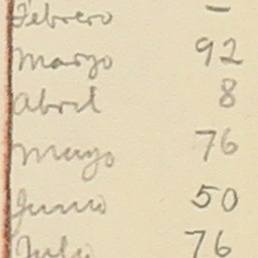 Febrero –
Marzo 92
Abril 8
Mayo 76
Junio 50
Julio 76